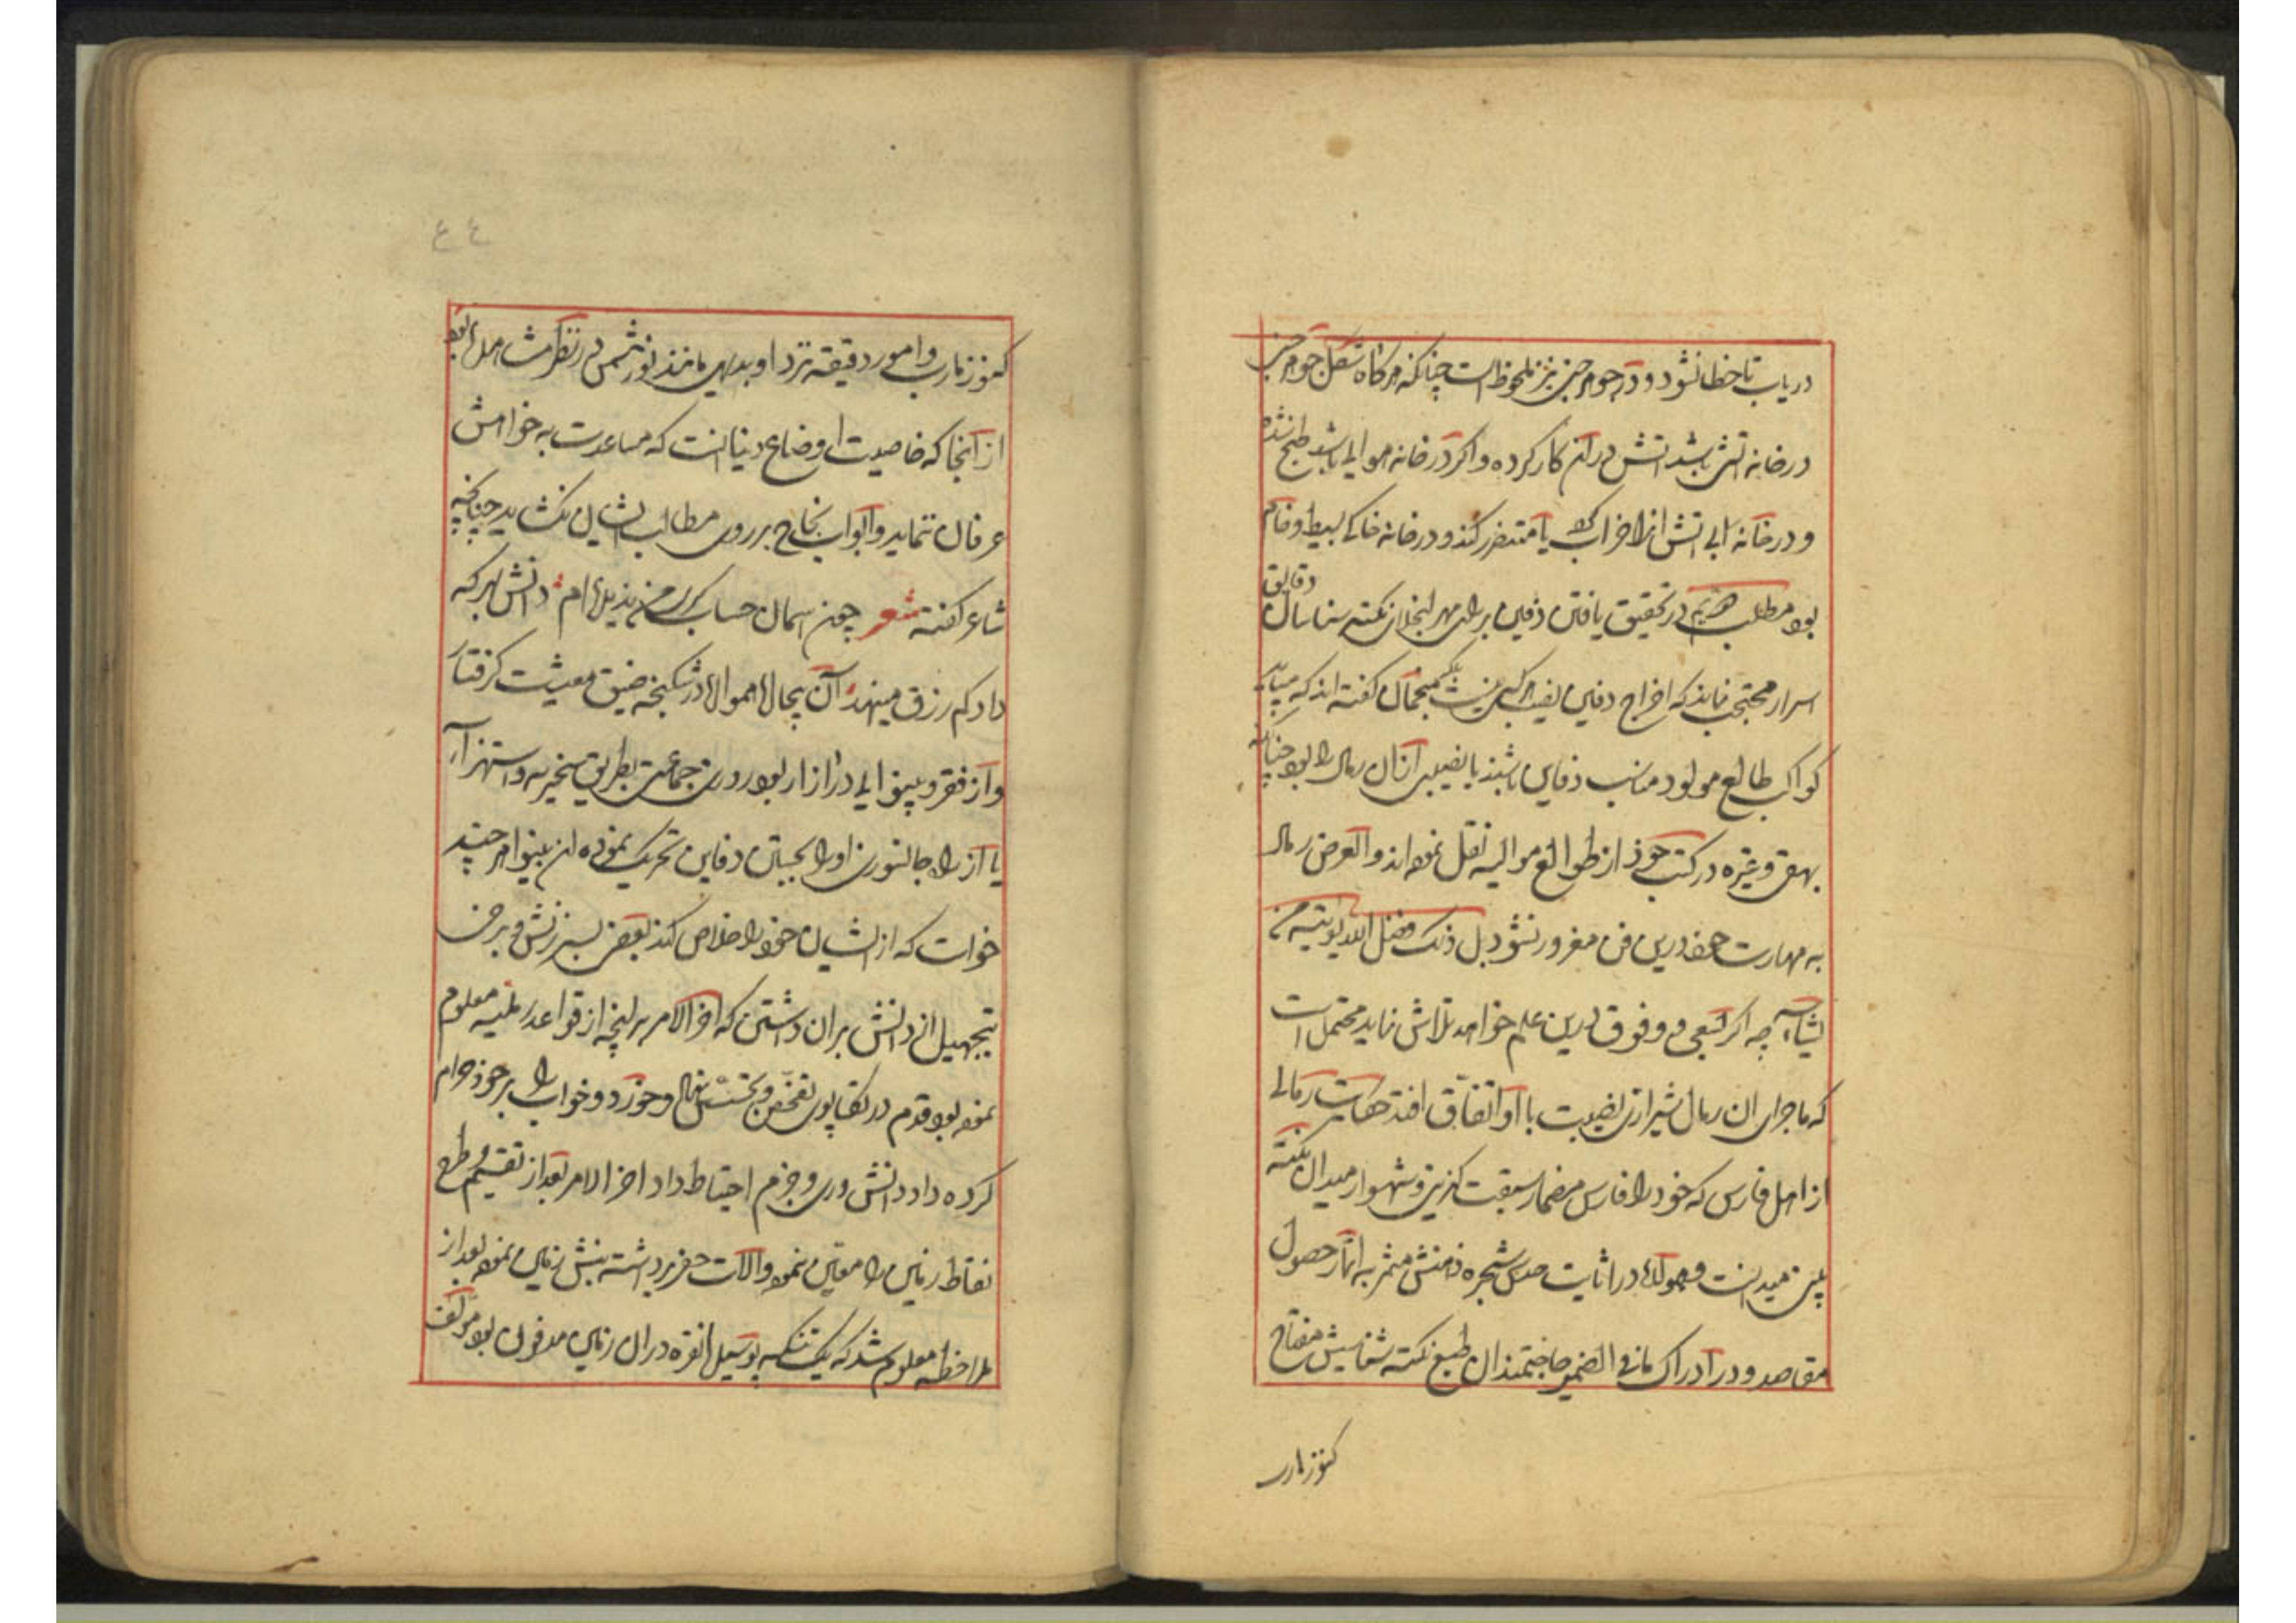 دریاب تا خطا نشود و در جوهر جنین نیز ملحوظ است چنانکه هرگاه شکل جوهر جنین
در خانه آتش باشد آتش در آن کار کرده و اگر در خانه هوایی باشد طبخ نشده
و در خانه آبی آتش از اخراب یا متضرر کند و در خانه خاکی بسیط و خام
بود مطلب در تحقیق یافتن دفین برای مهر نکته شناسان دقایق
اسرار محتجب نماند که اخراج دفین نصیب هر کس نیست منجمان گفته اند که میباید
کواکب طالع مولود مناسب دفاین باشند تا نصیب آنان رمال را بود چنانچه
بیهقی و غیره در کتب خود از طوالع موالید نقل نموده اند و الغرض رمال
به مهارت خود درین فن مغرور نشود بل ذلک فضل الله یؤتیه من
یشاء چه اگر بسعی و وفوق درین علم خواهد تلاش نماید محتمل است
که ماجرای ان رمال شیرازی نصیبت با او اتفاق افتد حکایت رمالی
از اهل فارس که خود را فارس مضمار سبقت گزینی و شهسوار میدان نکته
بینی میدانست و همواره در اثبات حدس شجره ذهنش مثمر به اثمار حصول
مقاصد و در ادراک ما فی الضمیر حاجتمندان طبع نکته شناسیش مفتاح
کنوز مارب
٤٤
کنوز مارب و امور دقیقه نزد او بدیهی مانند نور شمس در نظر اهل بود
از آنجا که خاصیت اوضاع دنیا انست که مساعدت به خواهش
عرفان ننماید و ابواب نجاح بر روی مطالب ایشان نکشاید چنانچه
شاعر گفته شعر چون آسمان حساب کرم من بدیده ام دانش بهر که
داد کم رزق مینهد آن بیچاره همواره در شکنجه ضیق معیشت گرفتار
و از فقر و بینوایی در آزار بود روزی جماعتی بطریق سخریه و استهزاء
یا از راه جانسوزی او را بجستن دفاین تحریک نموده ان بینوا هر چند
خواست که از ایشان خود را خلاص کند بعضی بسرزنش و برخی
بتجهیل از دانش بران داشتن که اخر الامر بر آنچه از قواعد رملیه معلوم
نموده بود قدم در تکاپوی تفحص و تجسس نهاد و خورد و خواب را بر خود حرام
کرده داد دانش وری و جزم احتیاط داد اخر الامر بعد از تقسیم و طرح
نقاط زمین را معین نموده و آلات حفر برداشته بنبش زمین نموده بعد از
ملاحظه معلوم شد که یک تنکه پوسیل نقره در ان زمین مدفون بود مؤلف